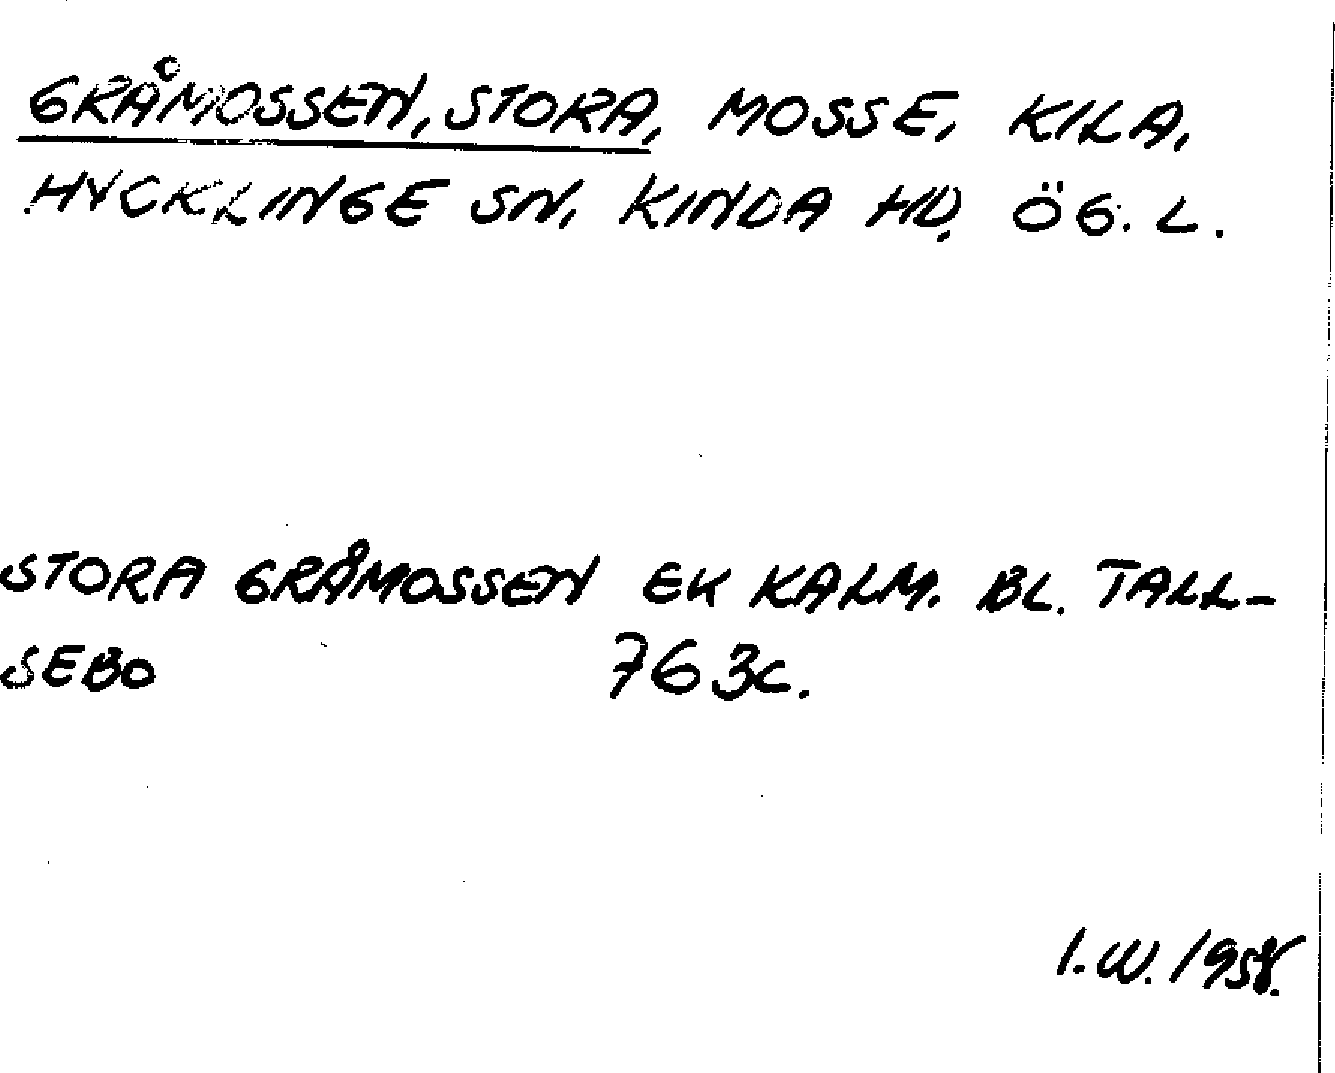 GRÅMOSSEN, STORA, MOSSE, KILA,
HYCKLINGE SN, KINDA HD, ÖG. L.
STORA GRÅMOSSEN EK KALM. BL. TALL-
SEBO 763c.
I.W. 1958.